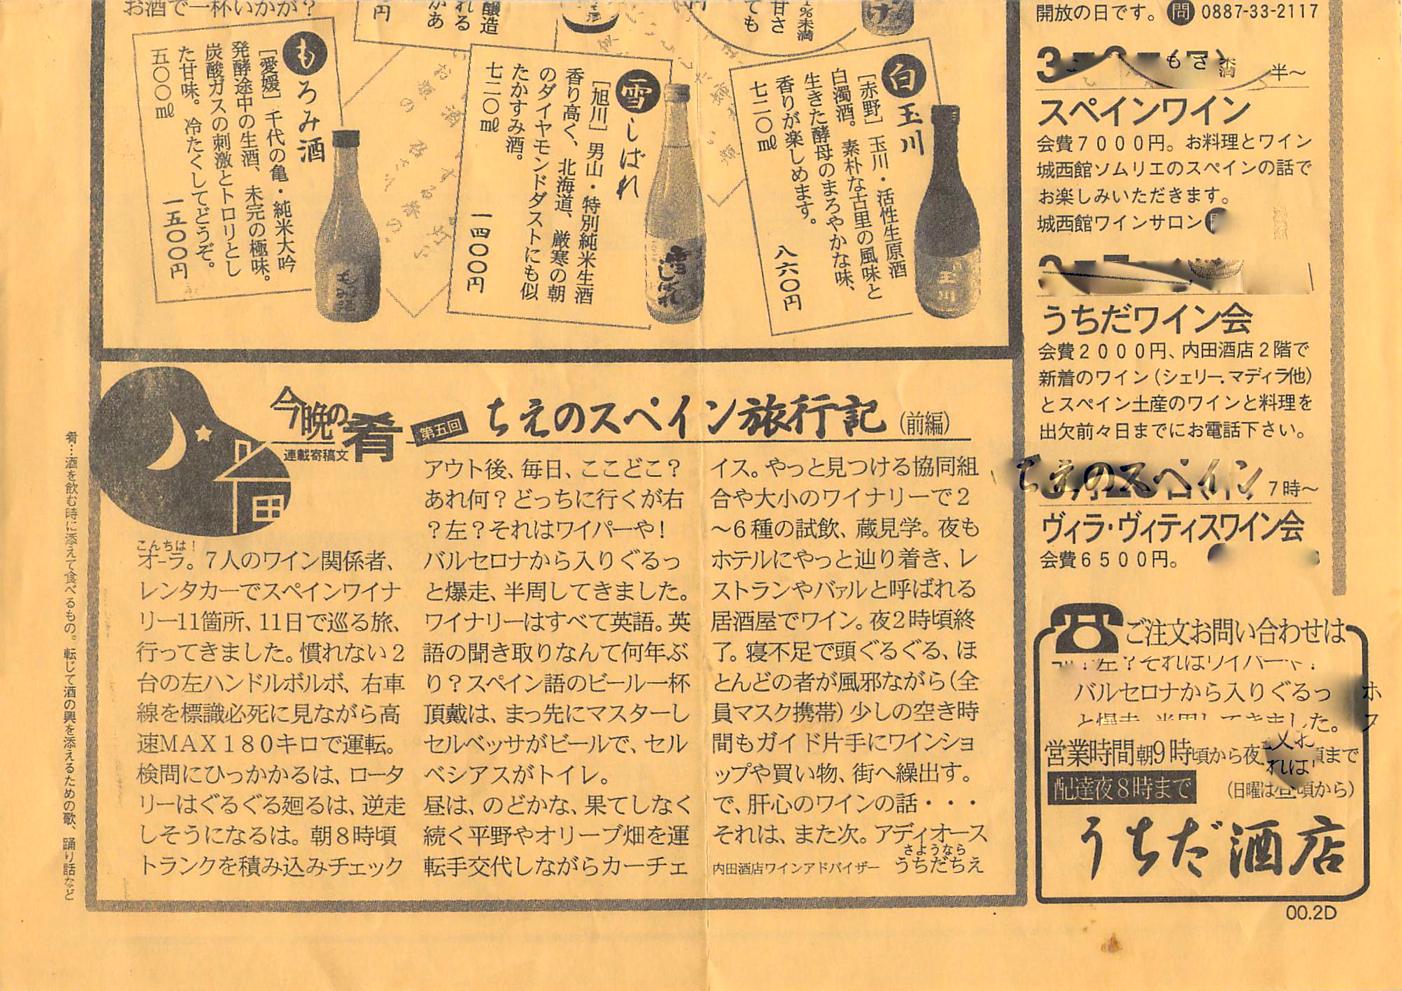 お酒で一杯いかが?
もろみ酒
[愛媛] 千代の亀・純米大吟
発酵途中の生酒、未完の極味。
炭酸ガスの刺激とトロリとし
た甘味。冷たくしてどうぞ。
五〇〇㎖
一五〇〇円
雪しばれ
[旭川] 男山・特別純米生酒
香り高く、北海道、厳寒の朝
のダイヤモンドダストにも似
たかすみ酒。
七二〇㎖
一四〇〇円
白玉川
[赤野] 玉川・活性生原酒
白濁酒。素朴な古里の風味と
生きた酵母のまろやかな味、
香りが楽しめます。
七二〇㎖
八六〇円
開放の日です。問 0887-33-2117
半~
スペインワイン
会費7000円。お料理とワイン
城西館ソムリエのスペインの話で
お楽しみいただきます。
城西館ワインサロン
うちだワイン会
会費2000円、内田酒店2階で
新着のワイン(シェリー、マディラ他)
とスペイン土産のワインと料理を
出欠前々日までにお電話下さい。
ちえのスペイン
7時~
ヴィラ・ヴィティスワイン会
会費6500円。
今晩の肴
連載寄稿文
第五回
ちえのスペイン旅行記(前編)
こんちは!
オーラ。7人のワイン関係者、
レンタカーでスペインワイナ
リー11箇所、11日で巡る旅、
行ってきました。慣れない2
台の左ハンドルボルボ、右車
線を標識必死に見ながら高
速MAX180キロで運転。
検問にひっかかるは、ロータ
リーはぐるぐる廻るは、逆走
しそうになるは。朝8時頃
トランクを積み込みチェック
アウト後、毎日、ここどこ?
あれ何?どっちに行くが右
?左?それはワイパーや!
バルセロナから入りぐるっ
と爆走、半周してきました。
ワイナリーはすべて英語。英
語の聞き取りなんて何年ぶ
り?スペイン語のビール一杯
頂戴は、まっ先にマスターし
セルベッサがビールで、セル
ベシアスがトイレ。
昼は、のどかな、果てしなく
続く平野やオリーブ畑を運
転手交代しながらカーチェ
イス。やっと見つける協同組
合や大小のワイナリーで2
~6種の試飲、蔵見学。夜も
ホテルにやっと辿り着き、レ
ストランやバァルと呼ばれる
居酒屋でワイン。夜2時頃終
了。寝不足で頭ぐるぐる、ほ
とんどの者が風邪ながら(全
員マスク携帯)少しの空き時
間もガイド片手にワインショ
ップや買い物、街へ繰出す。
で、肝心のワインの話・・・
それは、また次。アディオース
さようなら
内田酒店ワインアドバイザー うちだちえ
肴…酒を飲む時に添えて食べるもの。転じて酒の興を添えるための歌、踊り話など
ご注文お問い合わせは
?左?それはワイパーや!
バルセロナから入りぐるっ
と爆走、半周してきました。
営業時間朝9時頃から夜
頃まで
配達夜8時まで
(日曜は昼頃から)
うちだ酒店
00.2D